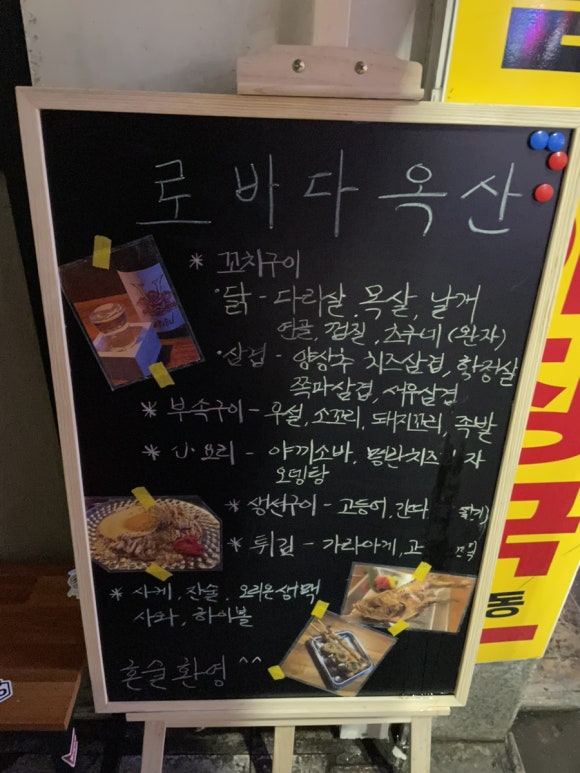 로바다 옥산
* 꼬치구이
• 닭 - 다리살, 목살, 날개
연골, 껍질, 츠쿠네 (완자)
• 삼겹 - 양상추 치즈삼겹, 항정살
쪽파삼겹, 새우삼겹
* 부속구이 - 우설, 소꼬리, 돼지꼬리, 족발
* 요리 - 야끼소바, 명란치즈
오뎅탕
* 생선구이 - 고등어,
* 튀김 - 가라아게, 고
* 사케, 잔술, 오리온 생맥
사와, 하이볼
혼술 환영 ^^
국
동